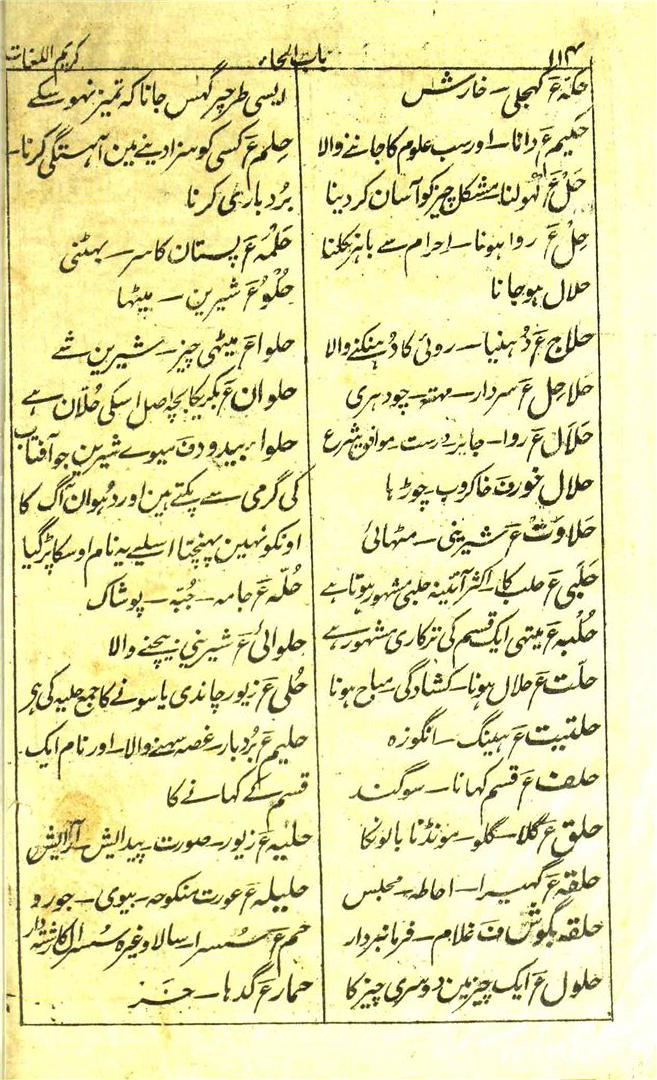 ۱۱۴ باب الحاء کریم اللغات
حکّہ عَ کھجلی۔ خارش
حکیم عَ دانا۔ اور سب علوم کا جاننے والا
حَلْ عَ کھولنا۔ مشکل چیز کو آسان کر دینا
حِلْ عَ روا ہونا۔ احرام سے باہر نکلنا
حلال ہو جانا
حلاج عَ دُہنیا۔ روئی کا دُہنکنے والا
حلاحل عَ سردار۔ مہتہ۔ چودہری
حَلَال عَ روا۔ جایز۔ درست۔ موافق شرع
حلال خور فَ خاکروب۔ چوڑہا
حلاوت عَ شیرینی۔ مٹھائی
حَلَبی عَ حلب کا۔ اکثر آئینہ حلبی مشہور ہوتا ہے
حُلبہ عَ میتھی ایک قسم کی ترکاری مشہور ہے
حلّت عَ حلال ہونا۔ کشادگی۔ مباح ہونا
حلتیت عَ ہینگ۔ انگوزہ
حلف عَ قسم کہانا۔ سوگند
حلق عَ گلا۔ گلو۔ مونڈنا بالونکا
حلقہ عَ گھیرا۔ احاطہ۔ مجلس
حلقہ بگوش فَ غلام۔ فرمانبردار
حلول عَ ایک چیز مین دوسری چیز کا
ایسی طرحپر گھس جانا کہ تمیز نہو سکے
حِلم عَ کسی کو سزا دینے مین آہستگی کرنا۔
بُردباری کرنا
حَلَمَہ عَ پستان کا سر۔ بھٹنی
حُلْوْ عَ شیرین۔ میٹھا
حلوا عَ میٹھی چیز۔ شیرین شے
حلوان عَ بکریکا بچہ اصل اسکی حُلّان ہے
حلواء بیدود فَ میوے شیرین جو آفتاب
کی گرمی سے پکتے ہین اور دہوان آگ کا
اونکو نہین پہنچتا اسلیے یہ نام اوسکا پڑ گیا
حُلّہ عَ جامہ۔ جُبّہ۔ پوشاک
حلوائی عَ شیرینی بیچنے والا
حُلی عَ زیور چاندی یا سونے کا جمع حلیہ کی ہے
حلیم عَ بُردبار۔ غصہ سہنے والا۔ اور نام ایک
قسم کے کہانے کا
حلیہ عَ زیور۔ صورت۔ پیدایش۔ آرایش
حلیلہ عَ عورت منکوحہ۔ بیوی۔ جورو
حم عَ سُسرا۔ سالا وغیرہ سُسرال کا رشتہ دار
حمار عَ گدہا۔ خر